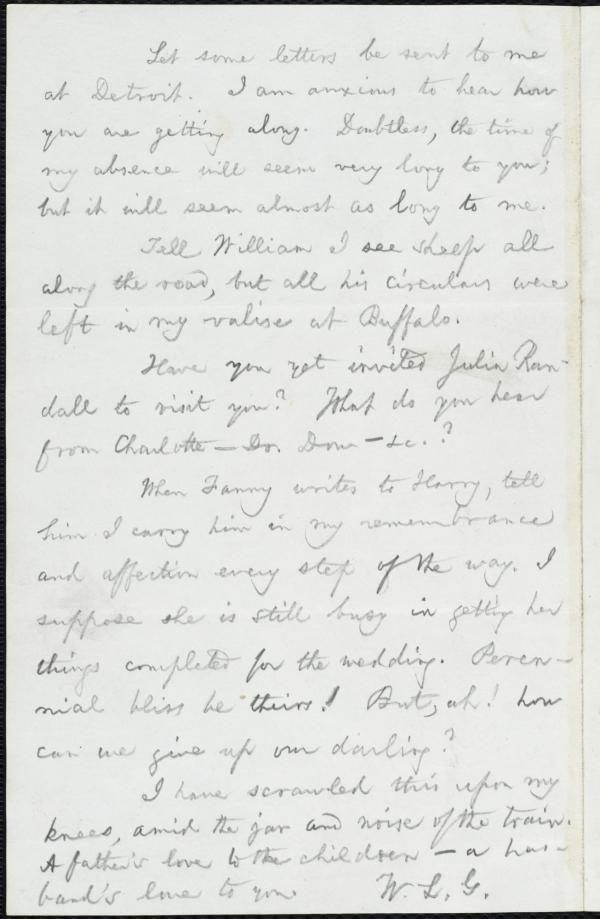 Let some letters be sent to me
at Detroit. I am anxious to hear how
you are getting along. Doubtless, the time of
my absence will seem very long to you;
but it will seem almost as long to me.
Tell William I see sheep all
along the road, but all his circulars were
left in my valise at Buffalo.
Have you yet invited Julia Ran-
dall to visit you? What do you hear
from Charlotte — Dr. Dow — &c.?
When Fanny writes to Harry, tell
him I carry him in my remembrance
and affection every step of the way. I
suppose she is still busy in getting her
things completed for the wedding. Peren-
nial bliss be theirs! But, ah! how
can we give up our darling?
I have scrawled this upon my
knees, amid the jar and noise of the train.
A father's love to the children — a hus-
band's love to you. W. L. G.